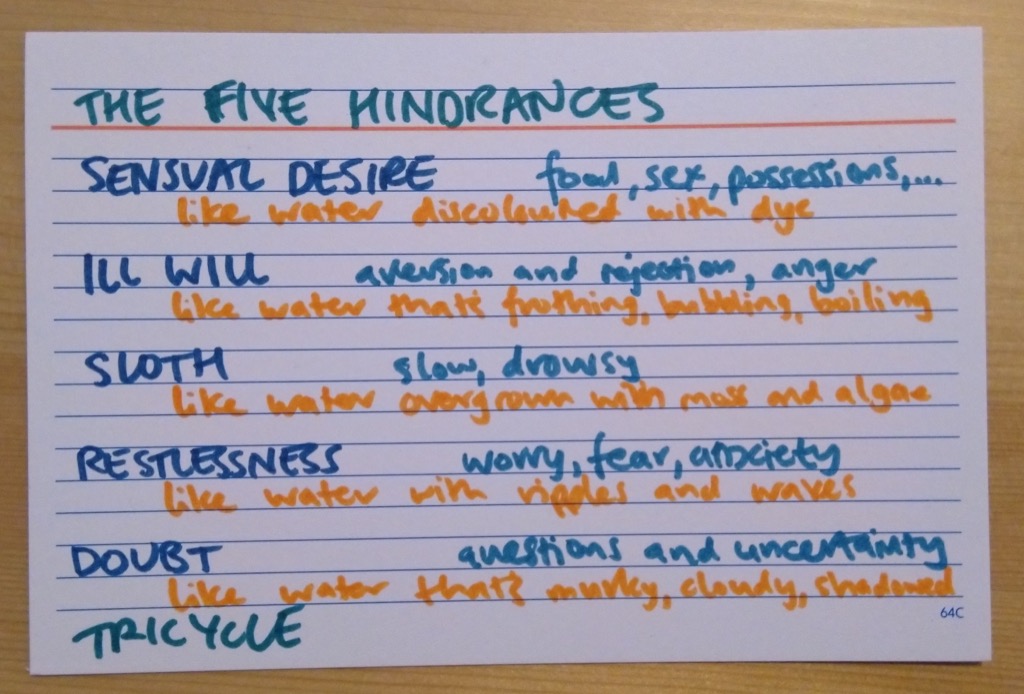 THE FIVE HINDRANCES
SENSUAL DESIRE food, sex, possessions,...
like water discoloured with dye
ILL WILL aversion and rejection, anger
like water that's frothing, bubbling, boiling
SLOTH slow, drowsy
like water overgrown with moss and algae
RESTLESSNESS worry, fear, anxciety
like water with ripples and waves
DOUBT questions and uncertainty
like water that's murky, cloudy, shadowed
64C
TRICYCLE